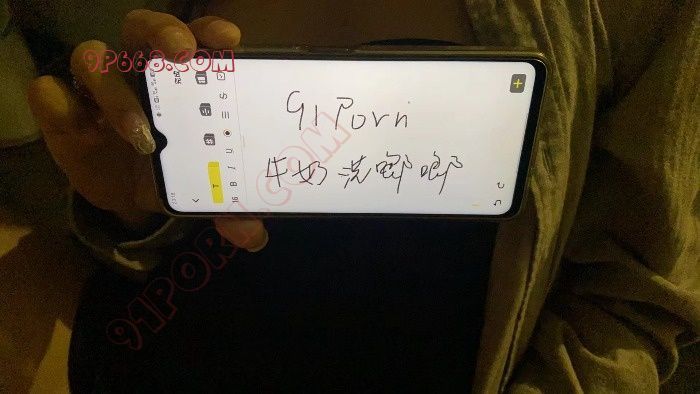 9P668.COM
91Porn
牛奶洗
91PORN.COM
T
16 B I U